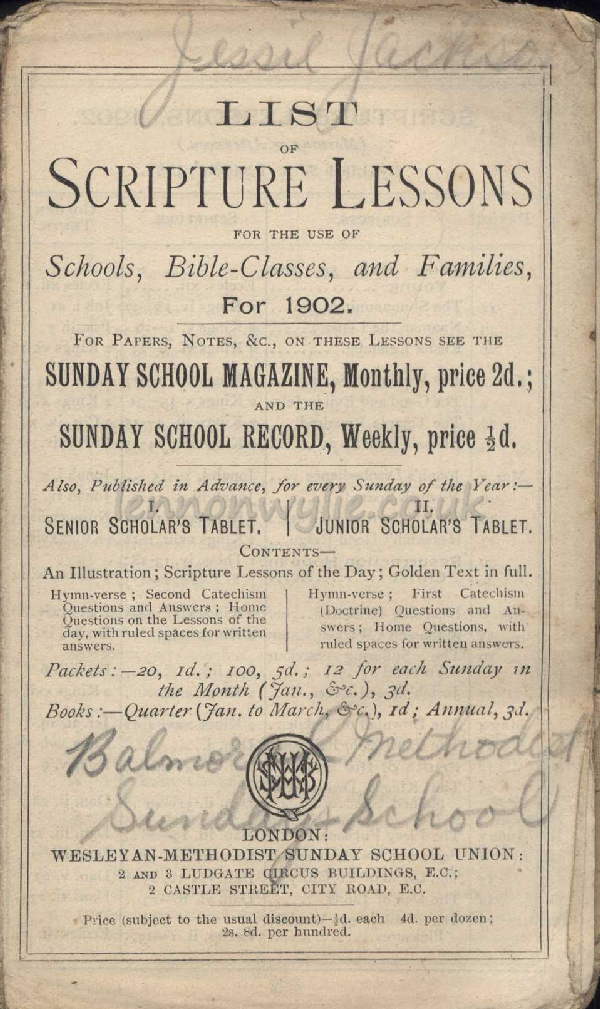 Jessie Jackson
LIST
OF
SCRIPTURE LESSONS
FOR THE USE OF
Schools, Bible-Classes, and Families,
For 1902.
FOR PAPERS, NOTES, &C., ON THESE LESSONS SEE THE
SUNDAY SCHOOL MAGAZINE, Monthly, price 2d.;
AND THE
SUNDAY SCHOOL RECORD, Weekly, price ½d.
Also, Published in Advance, for every Sunday of the Year:—
lennonwylie.co.uk
I.
SENIOR SCHOLAR'S TABLET.
II.
JUNIOR SCHOLAR'S TABLET.
CONTENTS—
An Illustration; Scripture Lessons of the Day; Golden Text in full.
Hymn-verse; Second Catechism
Questions and Answers; Home
Questions on the Lessons of the
day, with ruled spaces for written
answers.
Hymn-verse; First Catechism
(Doctrine) Questions and An-
swers; Home Questions, with
ruled spaces for written answers.
Packets:—20, 1d.; 100, 5d.; 12 for each Sunday in
the Month (Jan., &c.), 3d.
Books:—Quarter (Jan. to March, &c.), 1d; Annual, 3d.
Balmoral Methodist
Sunday School
LONDON:
WESLEYAN-METHODIST SUNDAY SCHOOL UNION:
2 AND 3 LUDGATE CIRCUS BUILDINGS, E.C.;
2 CASTLE STREET, CITY ROAD, E.C.
Price (subject to the usual discount)—½d. each 4d. per dozen;
2s. 8d. per hundred.